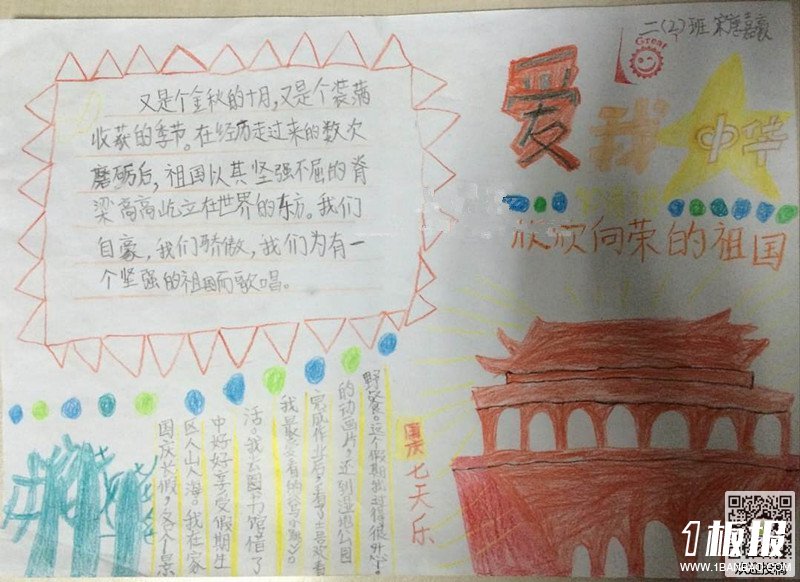 二(2)班
Great
爱我中华
欣欣向荣的祖国
又是个金秋的十月,又是个装满
收获的季节。在经历走过来的数次
磨砺后,祖国以其坚强不屈的脊
梁高高屹立在世界的东方。我们
自豪,我们骄傲,我们为有一
个坚强的祖国而歌唱。
国庆七天乐
国庆长假,各个景
区人山人海,我在家
中好好享受假期生
活。我去图书馆借了
我最爱看的
完成作业后,看了喜欢看
的动画片。还到湿地公园
野餐。这个假期我过得很开心。
1板报
WWW.1BANBAO.COM